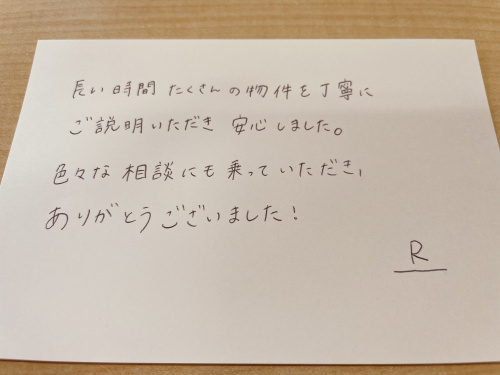 長い時間 たくさんの物件を丁寧に
ご説明いただき 安心しました。
色々な 相談にも 乗っていただき、
ありがとうございました！
R